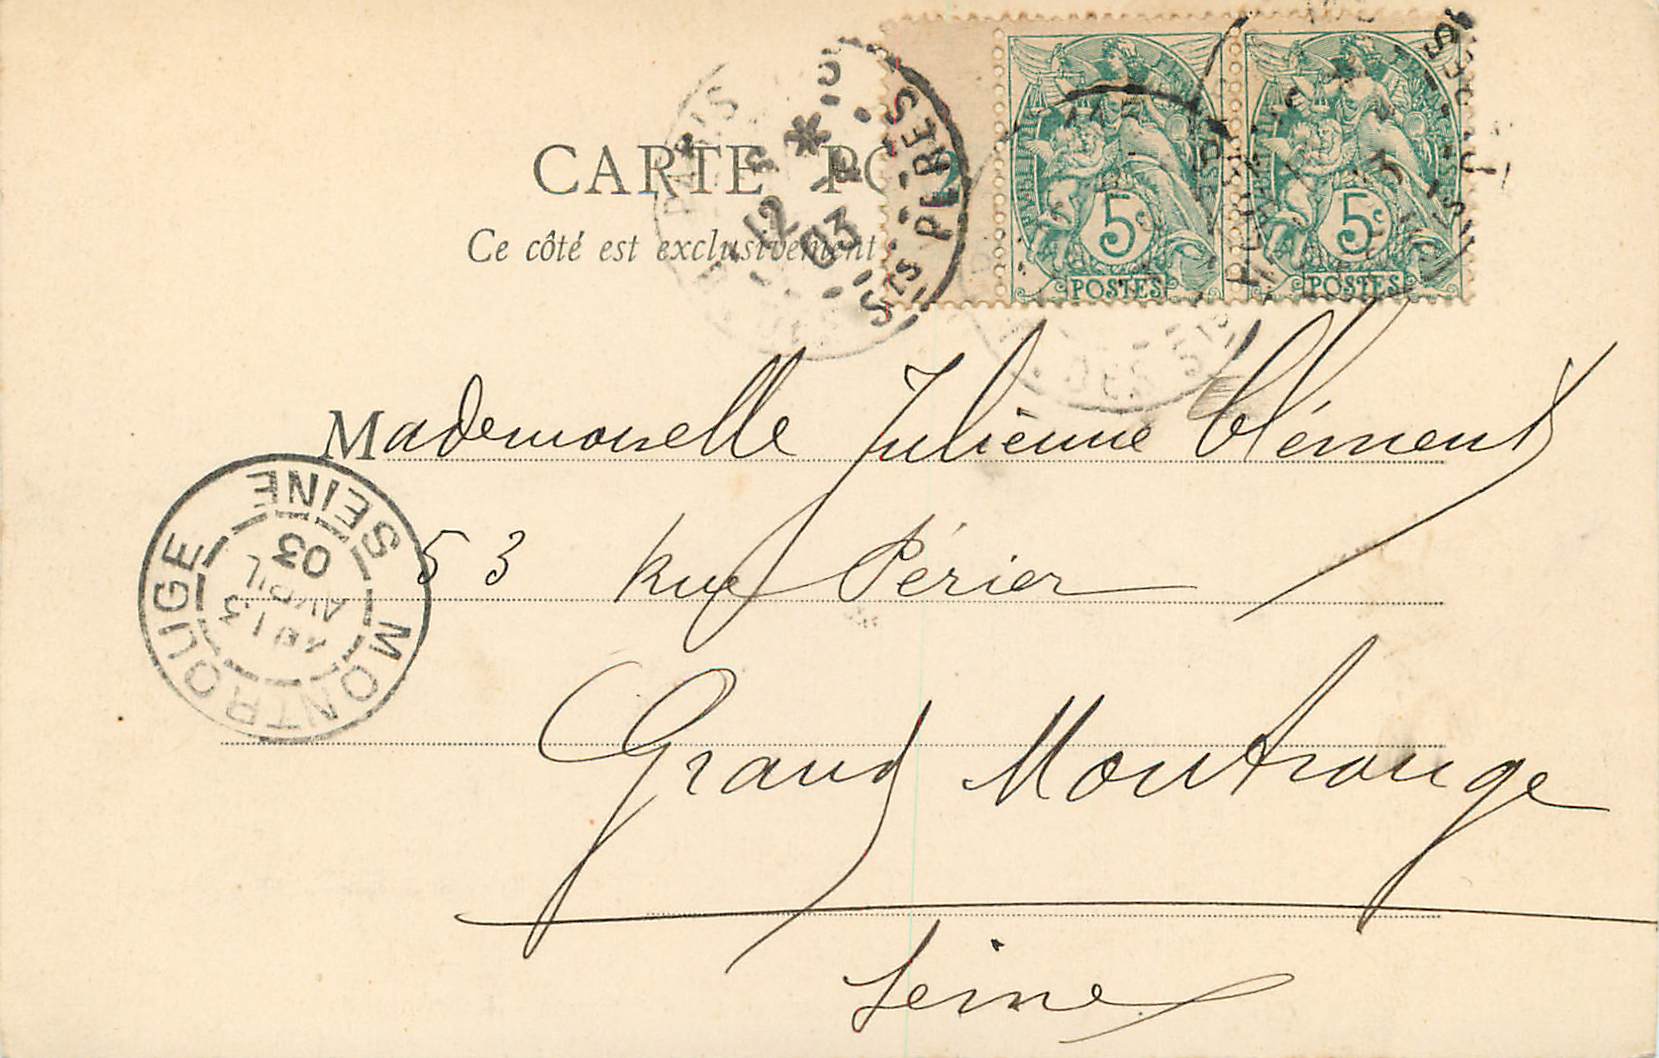 CARTE
Ce côté est exclusivement
PARIS
12
4
03
RUE DES STS PÈRES
5c
POSTES
5c
POSTES
Mademoiselle Julienne Clément
53 Rue Périer
Grand Montrouge
Seine
MONTROUGE
SEINE
13
AVRIL
03